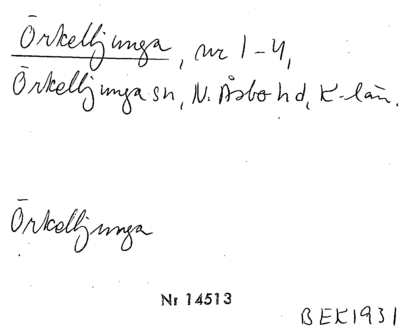 Örkelljunga, nr 1-4,
Örkelljunga sn, N. Åsbo hd, K-län.
Örkelljunga
Nr 14513
BEK1931